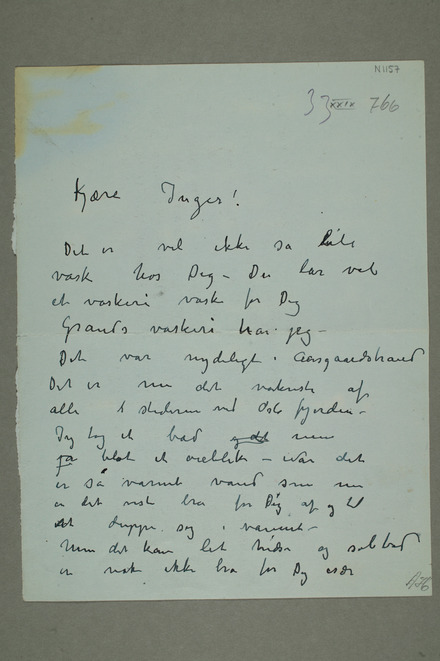 N1157
33 XXIX 766
Kjære Inger!
Det er vel ikke så lite
vask hos Dig – Du lar vel
et vaskeri vaske for Dig
Grands vaskeri har jeg –
Det var nydeligt i Aasgaardstrand
Det er nu det vakreste af
alle stederne ved Oslo fjorden –
Jeg tog et bad men
blot et øieblik – når det
er så varmt vand som nu
er det vist bra for Dig af og til
at duppe sig i vannet –
Men det kan let og saltbad
er nok ikke bra for Dig især